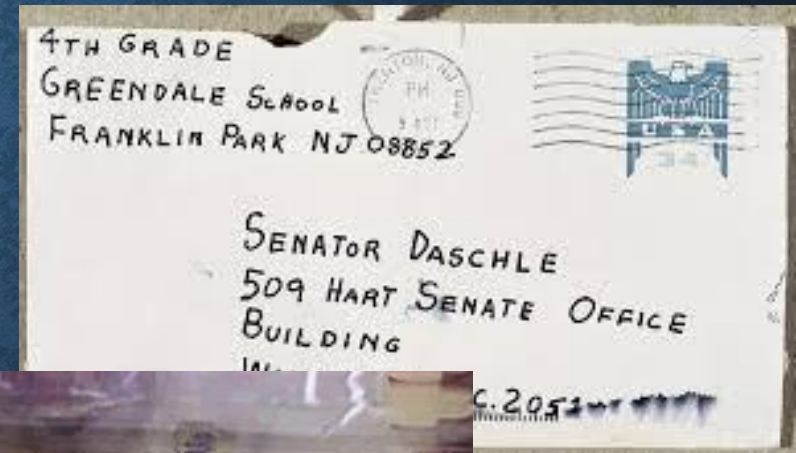 4TH GRADE
GREENDALE SCHOOL
FRANKLIN PARK NJ 08852
PM
USA
34
SENATOR DASCHLE
509 HART SENATE OFFICE
BUILDING
C. 2051